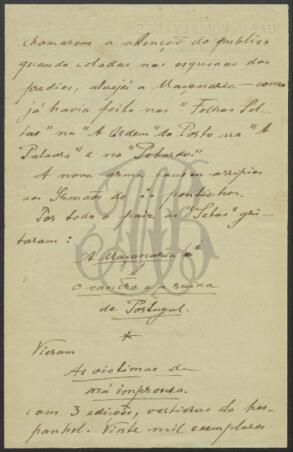 chamarem a attenção do publico
quando coladas nas esquinas dos
predios, atacei a Maçonaria — como
já havia feito nas "Folhas Sol-
tas" na "A Ordem" do Porto na "A
Palavra" e no "Petardo."
A nova arma causou arripios
aos Irmãos do ∴ pontinhos.
Por todo o paiz as "Setas" gri-
taram:
A Maçonaria
é
o cancro e a ruina
de Portugal.
*
Vieram
As victimas da
má imprensa.
com 3 edições, vertidas do hes-
panhol. Vinte mil exemplares